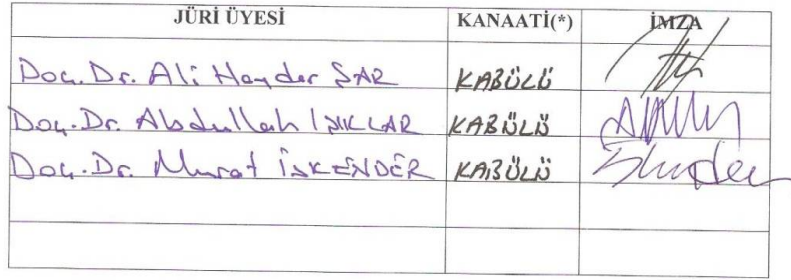 JÜRİ ÜYESİ KANAATİ(*) İMZA
Doç. Dr. Ali Haydar ŞAR KABÜLÜ
Doç. Dr. Abdullah IŞIKLAR KABÜLÜ
Doç. Dr. Murat İSKENDER KABÜLÜ